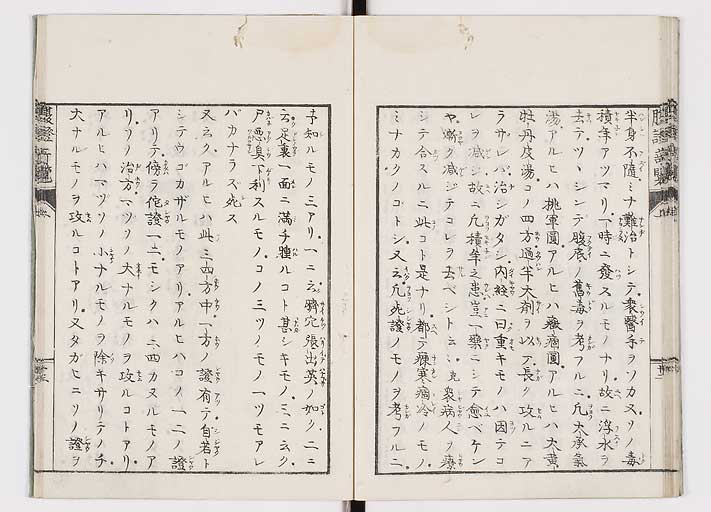 半身不隨ミナ難治トシテ衆醫手ヲツカヌソノ毒
積年アツマリ一時ニ發スルモノナリ故ニ浮水ヲ
去テツヽシンデ腹底ノ舊毒ヲ考フルニ凡大承氣
湯アルヒハ桃軍圓アルヒハ癥痛圓アルヒハ大黄
牡丹皮湯コノ四方過半大劑ヲ以テ長ク攻ルニア
ラザレバ治シガタシ内經ニ曰重キモノハ因テコ
レヲ減ジ故ニ凡積年之患豈一藥ニシテ愈ベケン
ヤ漸ク減ジテコレヲ去ベシトニ衆病人ヲ療
シテ合スルニ此コト是ナリ都テ痼寒痛冷ノモノ
ミナカクノコトシ又云凡死證ノモノヲ考フルニ
予知ルモノ三アリ一ニ云臍穴張出英ノ如ク二ニ
云足裏一面ニ滿チ腫ルコト甚シキモノ三ニ云ク
戸惡臭下利スルモノコノ三ツノモノ一ツモアレ
バカナラズ死ス
又云クアルヒハ此ニ四方中一方ノ證有テ自若ト
シテウゴカザルモノアリアルヒハコノ一二ノ證
アリテ傍ラ佗證一二モシクハ三四カヌルモノア
リソノ治方マヅソノ大ナルモノヲ攻ルコトアリ
アルヒハマヅソノ小ナルモノヲ除キサリテノチ
大ナルモノヲ攻ルコトアリ又タガヒニソノ證ヲ